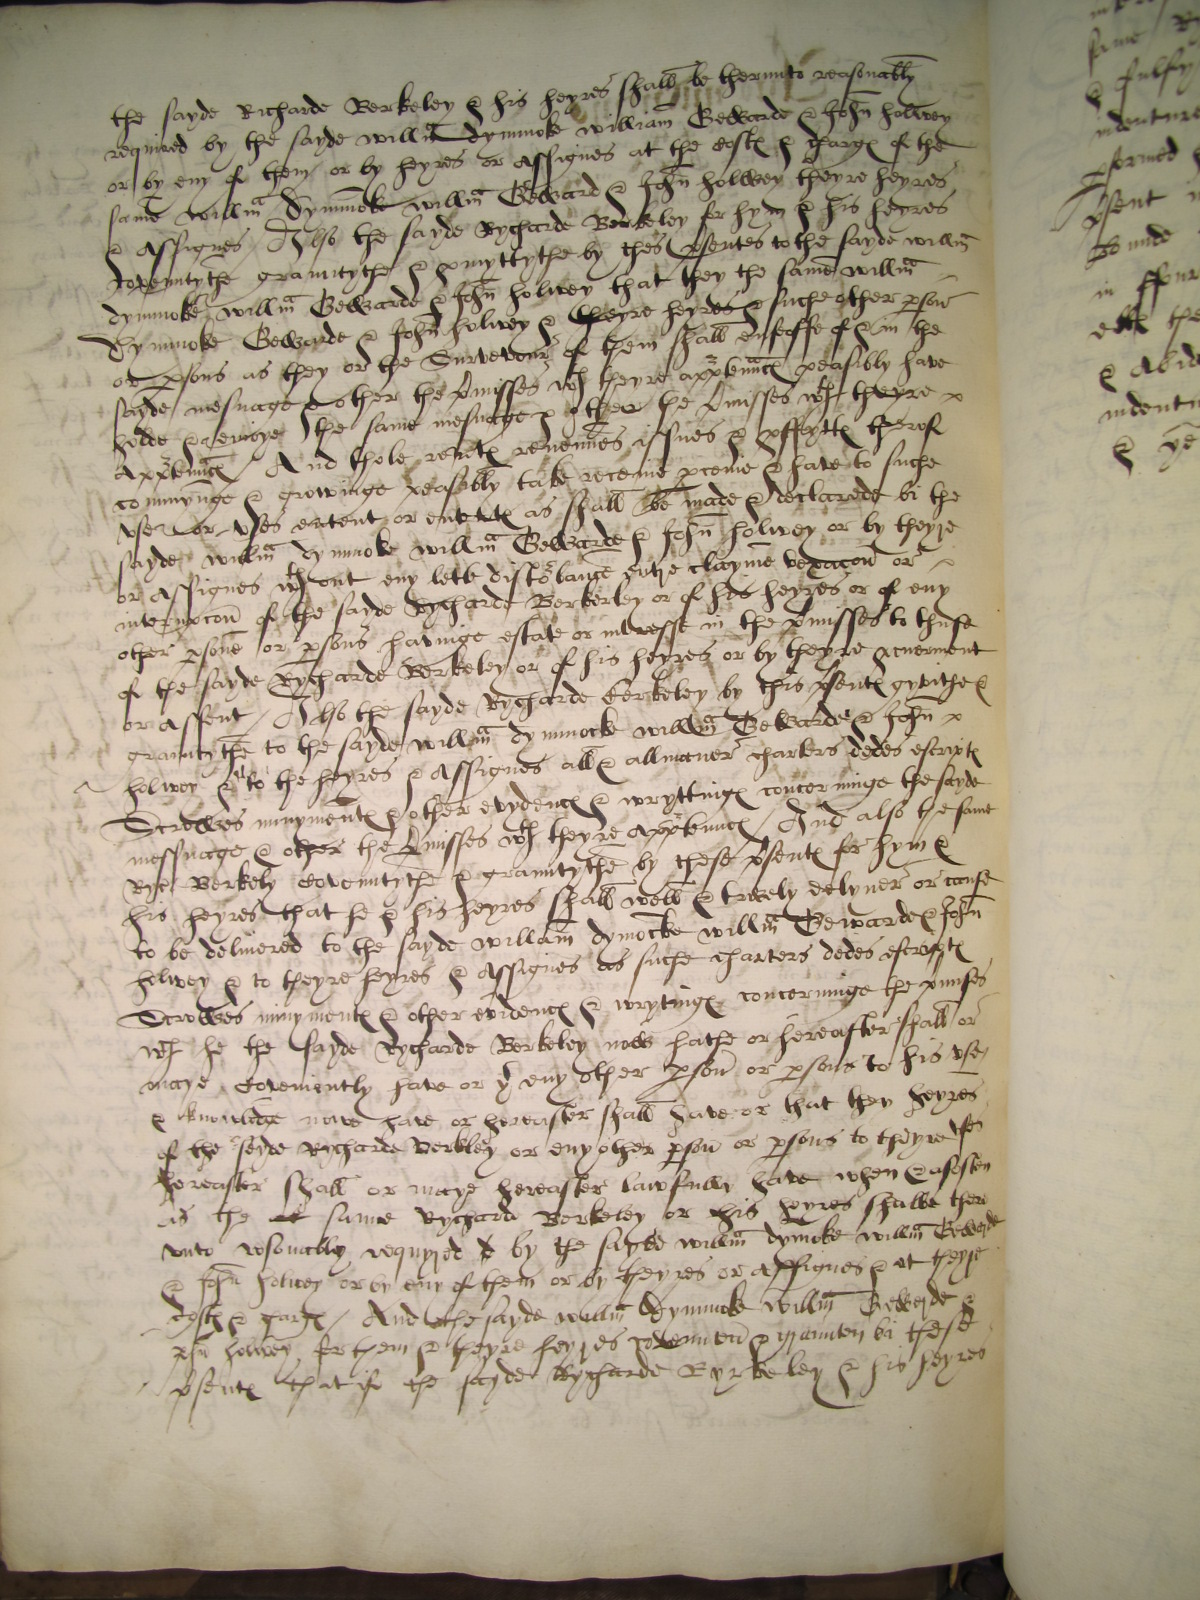 the sayde Richarde Berkeley & his heyres shall be therunto reasonably
required by the sayde Willm Dymmoke William Gewarde & John holwey
or by eny of them or by heyres or Assignes at the costs & charges of the
same Willm Dymmoke Willm Geward & John holwey theyre heyres
& Assignes / Also the sayde Rycharde Berkeley for hym & his heyres
covenntythe grauntythe & pmyttythe by thes psentes to the sayde Willm
dymmoke Willm Gewarde & John holwey that they the same Willm
Dymmoke Gewarde & John holwey & theyre heyres & suche other person
or psons as they or the Survevour of them shall enfeoffe of & in the
sayde mesuage & other the pmisses wth theyre apptennces peasibly have
holde & enioye the same mesuage & other the pmisses wth theyre
Apptennces / And thole rentes revenues issues & pffyttes therof
commynge & growinge peasibly take receive pceive & have to suche
vse or vses entent or ententes as shall be made & declarede bi the
sayde Willm dymmoke Willm Gewarde & John holwey or by theyre
or Assignes wthout eny lett distorbance entre clayme vexacon or
interupcon of the sayde Rycharde Berkerley or of his heyres or of eny
other psone or psons havinge estate or interesse in the pmisses to thuse
of the sayde Rycharde Berkeley or of his heyres or by theyre
or Assent / Also the sayde Rycharde Berkeley by this psentes gyvithe &
grauntythe to the sayde Willm dymmocke Willm Gewarde & John
holwey & to the heyres & Assignes all & allmaner charters dedes escriptes
Scrowes mynymentes & other evydences & wryttinges concerninge the sayde
messuage & other the pmisses wth theyre apptennces / And also the same
Ryc Berkely covenntythe & grauntythe by these psentes for hym &
his heyres that he & his heyres shall well & trwely delyver or cause
to be delivered to the sayde William dymocke Willm Gewarde & John
holwey & to theyre heyres & Assignes as suche charters dedes escriptes
Scrowes mynymentes & other evidences & wrytinges concerninge the pmises
wch he the sayde Rycharde Berkeley now hathe or hereafter shall or
maye coveniently have or yf eny other pson or psons to his vse
& knowlege nowe have or hereafter shall have or that they heyres
of the seyde Rycharde Berkley or eny other pson or psons to theyre vse
hereafter shall or maye hereafter lawfully have when & asoften
as the same Rychard Berkeley or his heyres shalbe ther
vnto resonably requyred by the sayde Willm dymoke Willm Gewerde
& John holwey or by eny of them or by theyres or Assignes & at theyre
costes & charges / And the sayde Willm Dymmoke Willm Gewerde &
John holwey for them & theyre heyres covennten & graunten bi these
psentes that if the sayde Rycharde Byrkeley & his heyres